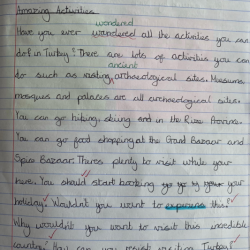 Amazing Activities
wondered
Have you ever wandered all the activities you can
do in Turkey? There are lots of activities you can
ancient
do such as visiting archaeological sites. Museums
mosques and palaces are all archaeological sites.
You can go hiking, skiing and in the Rize
You can go food shopping at the Grand Bazaar and
Spice Bazaar. Theres plenty to visit while your
here. You should start booking your
holiday! Wouldn't you want to this?
Why wouldn't you want to visit this incredible
country. How can you resist visiting Turkey!